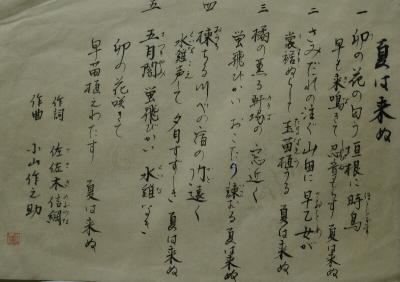 夏は来ぬ
一 卯の花の匂う垣根に 時鳥
ほととぎす
早も来鳴きて 忍音もらす 夏は来ぬ
二 さみだれの注ぐ山田に 早乙女が
裳裾ぬらして 玉苗植うる 夏は来ぬ
三 橘の薫る軒場の 窓近く
蛍飛びかい おこたり諫むる 夏は来ぬ
四 楝ちる川べの宿の 門遠く
水鶏声して 夕月すずしき 夏は来ぬ
五 五月闇 蛍飛びかい 水鶏なき
卯の花咲きて
早苗植えわたす 夏は来ぬ
作詞 佐佐木信綱
作曲 小山作之助